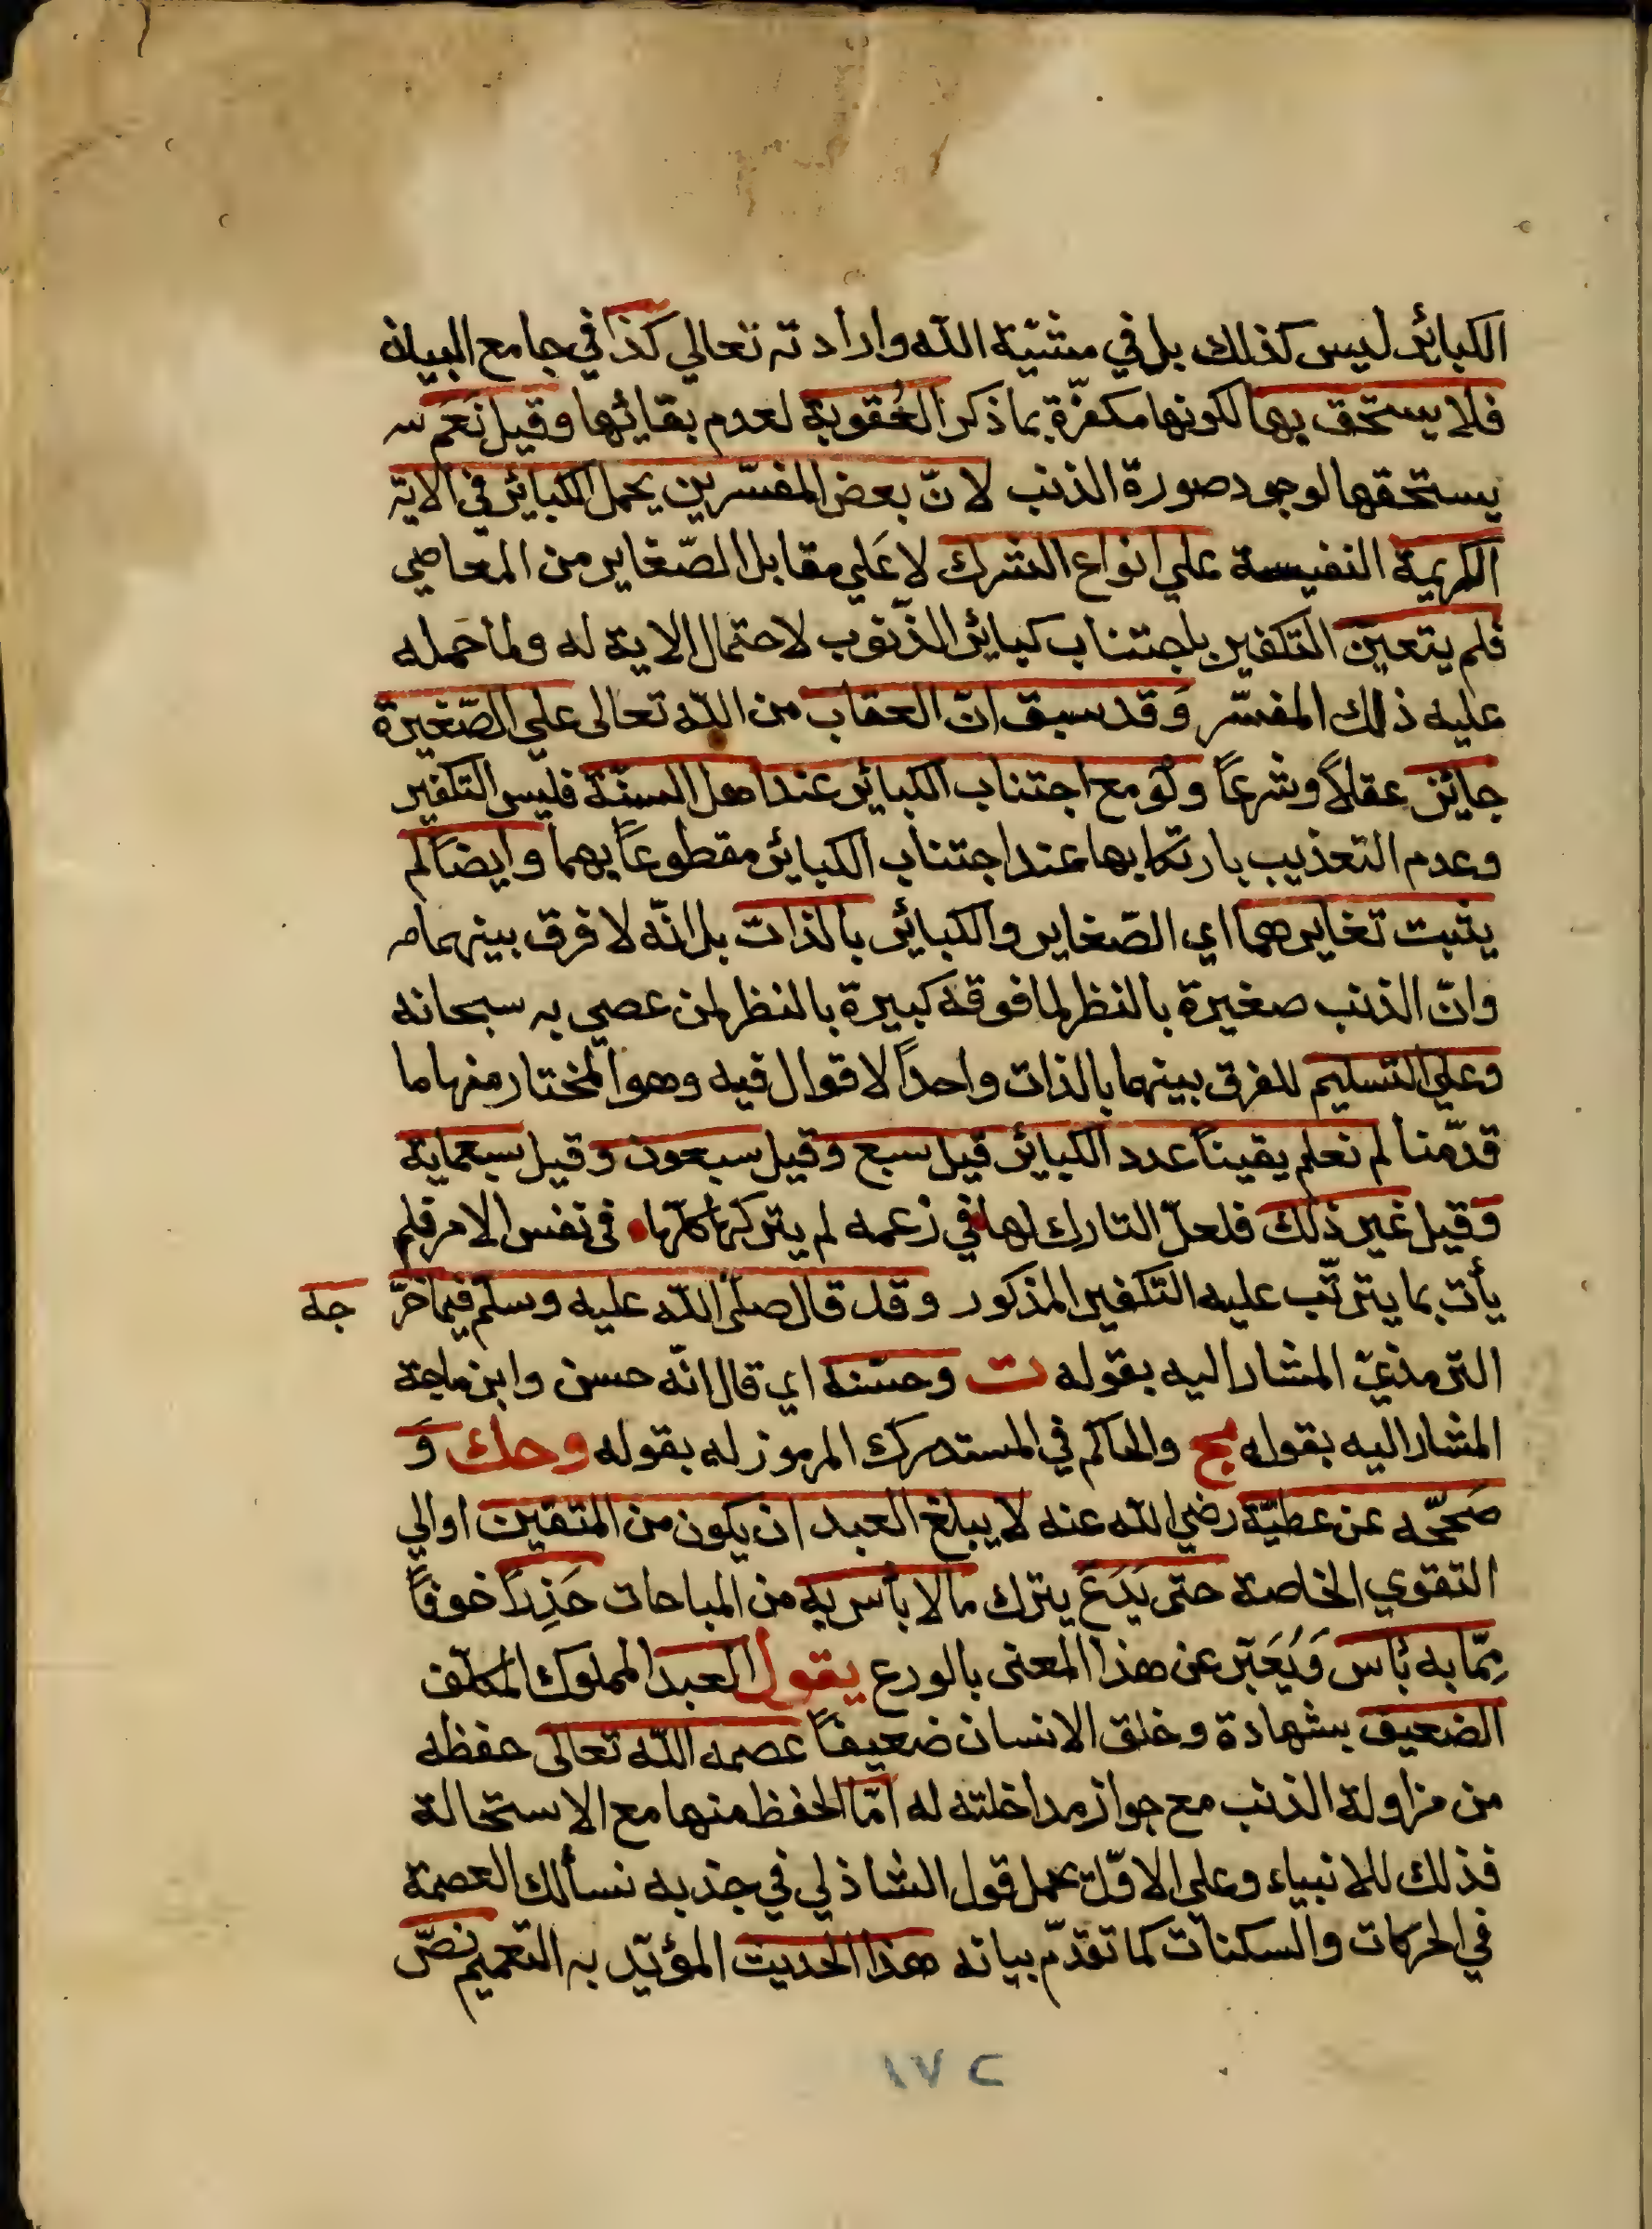 الكبائر ليس كذلك بل في مشيّة الله وارادته تعالي كذا في جامع البيان
فلا يستحق بها لكونها مكفّرة بما ذكر العُقوبة لعدم بقائها وقيل نَعَم
يستحقها لوجود صورة الذنب لانّ بعض المفسّرين يحمل الكبائر في الاية
الكريمة النفيسة علي انواع الشرك لا عَلي مقابل الصّغاير من المعاصي
فلم يتعيّن التكفير باجتناب كبائر الذّنوب لاحتمال الاية له ولما حمله
عليه ذلك المفسّر وَقد سبق انّ العقاب من الله تعالى علي الصّغيرة
جائز عقلاً وشرعًا ولَو مع اجتناب الكبائر عند اهل السنّة فليس التكفير
وعدم التعذيب بارتكابها عند اجتناب الكبائر مقطوعًا بهما وايضا لم
يثبت تغايرهما اي الصّغاير والكبائر بالذات بل انّه لا فرق بينهما
وانّ الذنب صغيرة بالنظر لما فوقه كبيرة بالنظر لمن عصي به سبحانه
وعلي التسليم للفرق بينهما بالذات واحداً لاقوال فيه وهو المختار منها ما
قدّمنا لم نعلم يقيناً عدد الكبائر قيل سبع وقيل سبعون وقيل سبعماية
وقيل غير ذلك فلعلّ التارك لها في زعمه لم يتركها كلّها في نفس الامر فلم
يأت بما يترتّب عليه التكفير المذكور وقد قال صلّى الله عليه وسلّم فيما خرّجه
الترمذيّ المشار اليه بقوله ت وحسّنه اي قال انّه حسن وابن ماجة
المشار اليه بقوله مج والحاكم في المستدرك المرموز له بقوله وحك وَ
صَحّحه عن عطيّة رضي الله عنه لا يبلغ العبد ان يكون من المتّقين اوالي
التقوي الخاصة حتى يَدَعَ يترك ما لا بأس به من المباحات حَذِراً خوفًا
مِمّا به بأس وَيُعَبّر عن هذا المعنى بالورع يقول العبد المملوك المكلّف
الضعيف بشهادة وخلق الانسان ضعيفاً عصمه الله تعالى حفظه
من مزاولة الذنب مع جواز مداخلته له امّا الحفظ منها مع الاستحالة
فذلك للانبياء وعلي الاوّل يحمل قول الشاذلي في حزبه نسألك العصمة
في الحركات والسكنات كما تقدّم بيانه هذا الحديث المؤيّد به التعميم نصّ
١٧٢